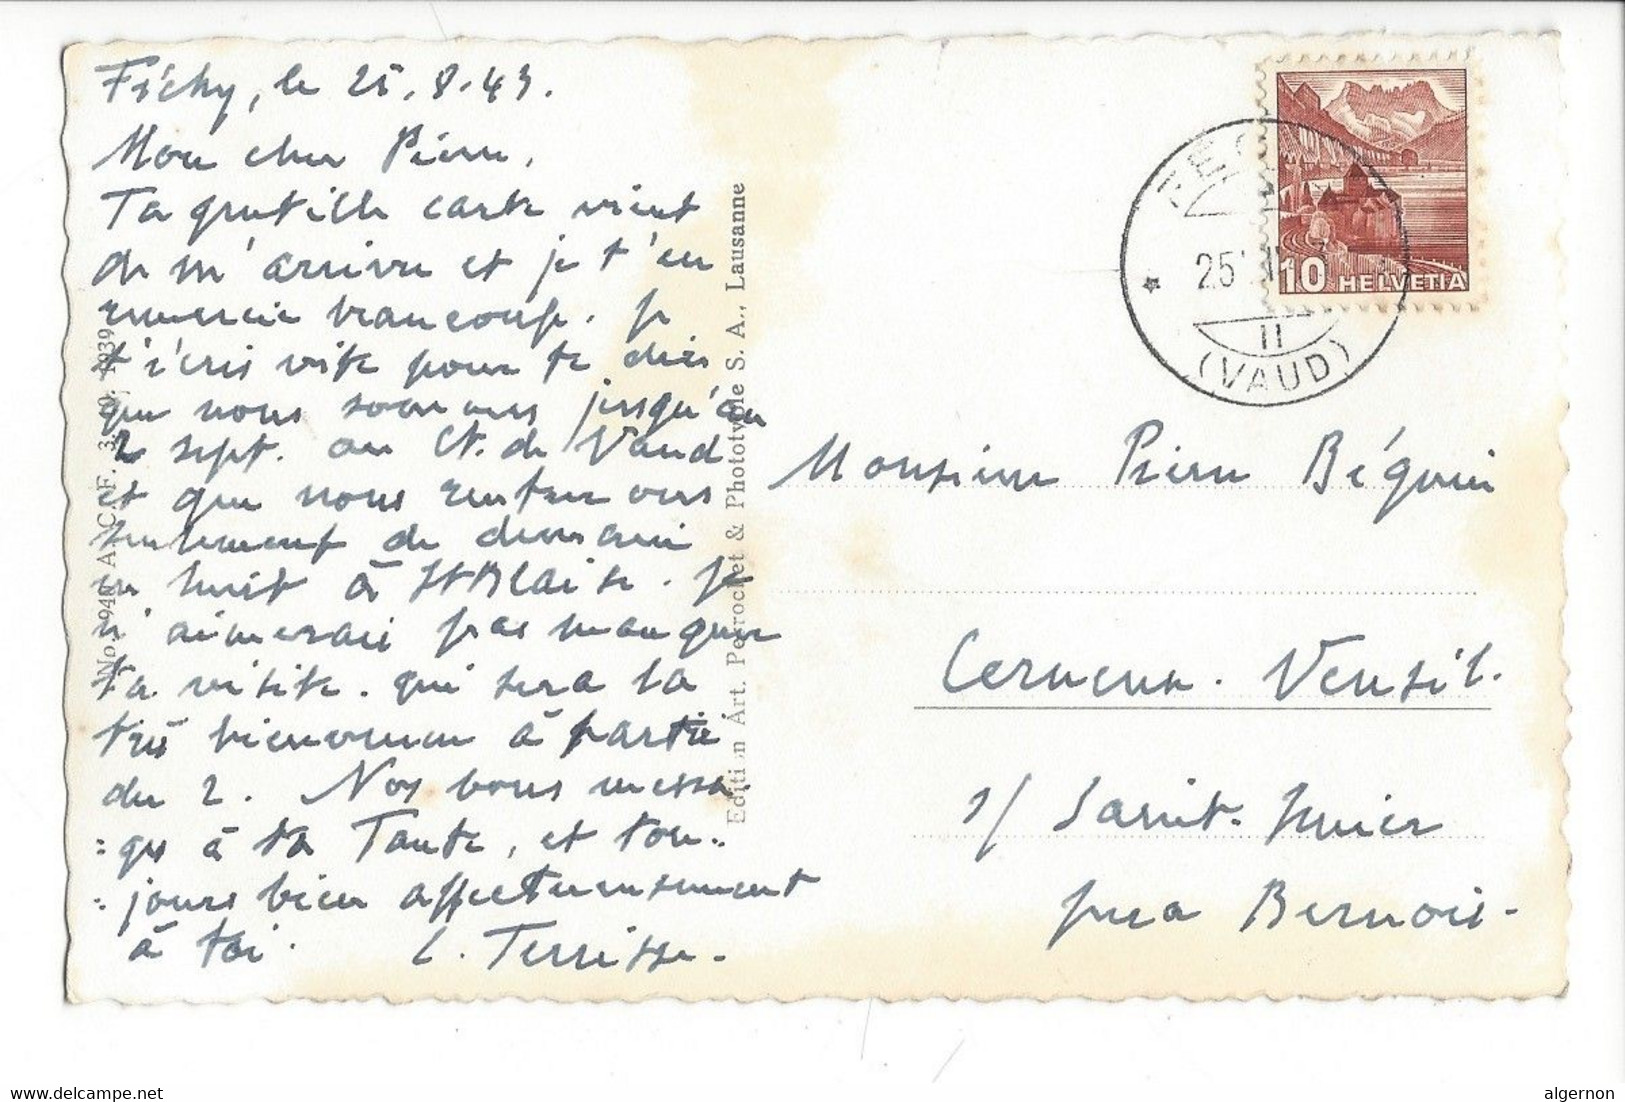 Féchy, le 25.8.43.
Mon cher Pierre,
Ta gentille carte vient
de m'arriver et je t'en
remercie beaucoup. Je
t'écris vite pour te dire
que nous sommes jusqu'au
2 sept. au Ct. de Vaud
et que nous rentrerons
seulement de demain
en huit à St Blaise. Je
n'aimerais pas manquer
ta visite. qui sera la
très bienvenue à partir
du 2. Nos bons messa-
=ges à ta Tante, et tou-
=jours bien affectueusement
à toi. L. Terrisse.
Edition Art. Perrochet & Phototypie S. A., Lausanne
10 HELVETIA
25
11
(VAUD)
Monsieur Pierre Béguin
Cerneux-Veusil.
s/ Saint-Imier
Jura Bernois-
www.delcampe.net
algernon